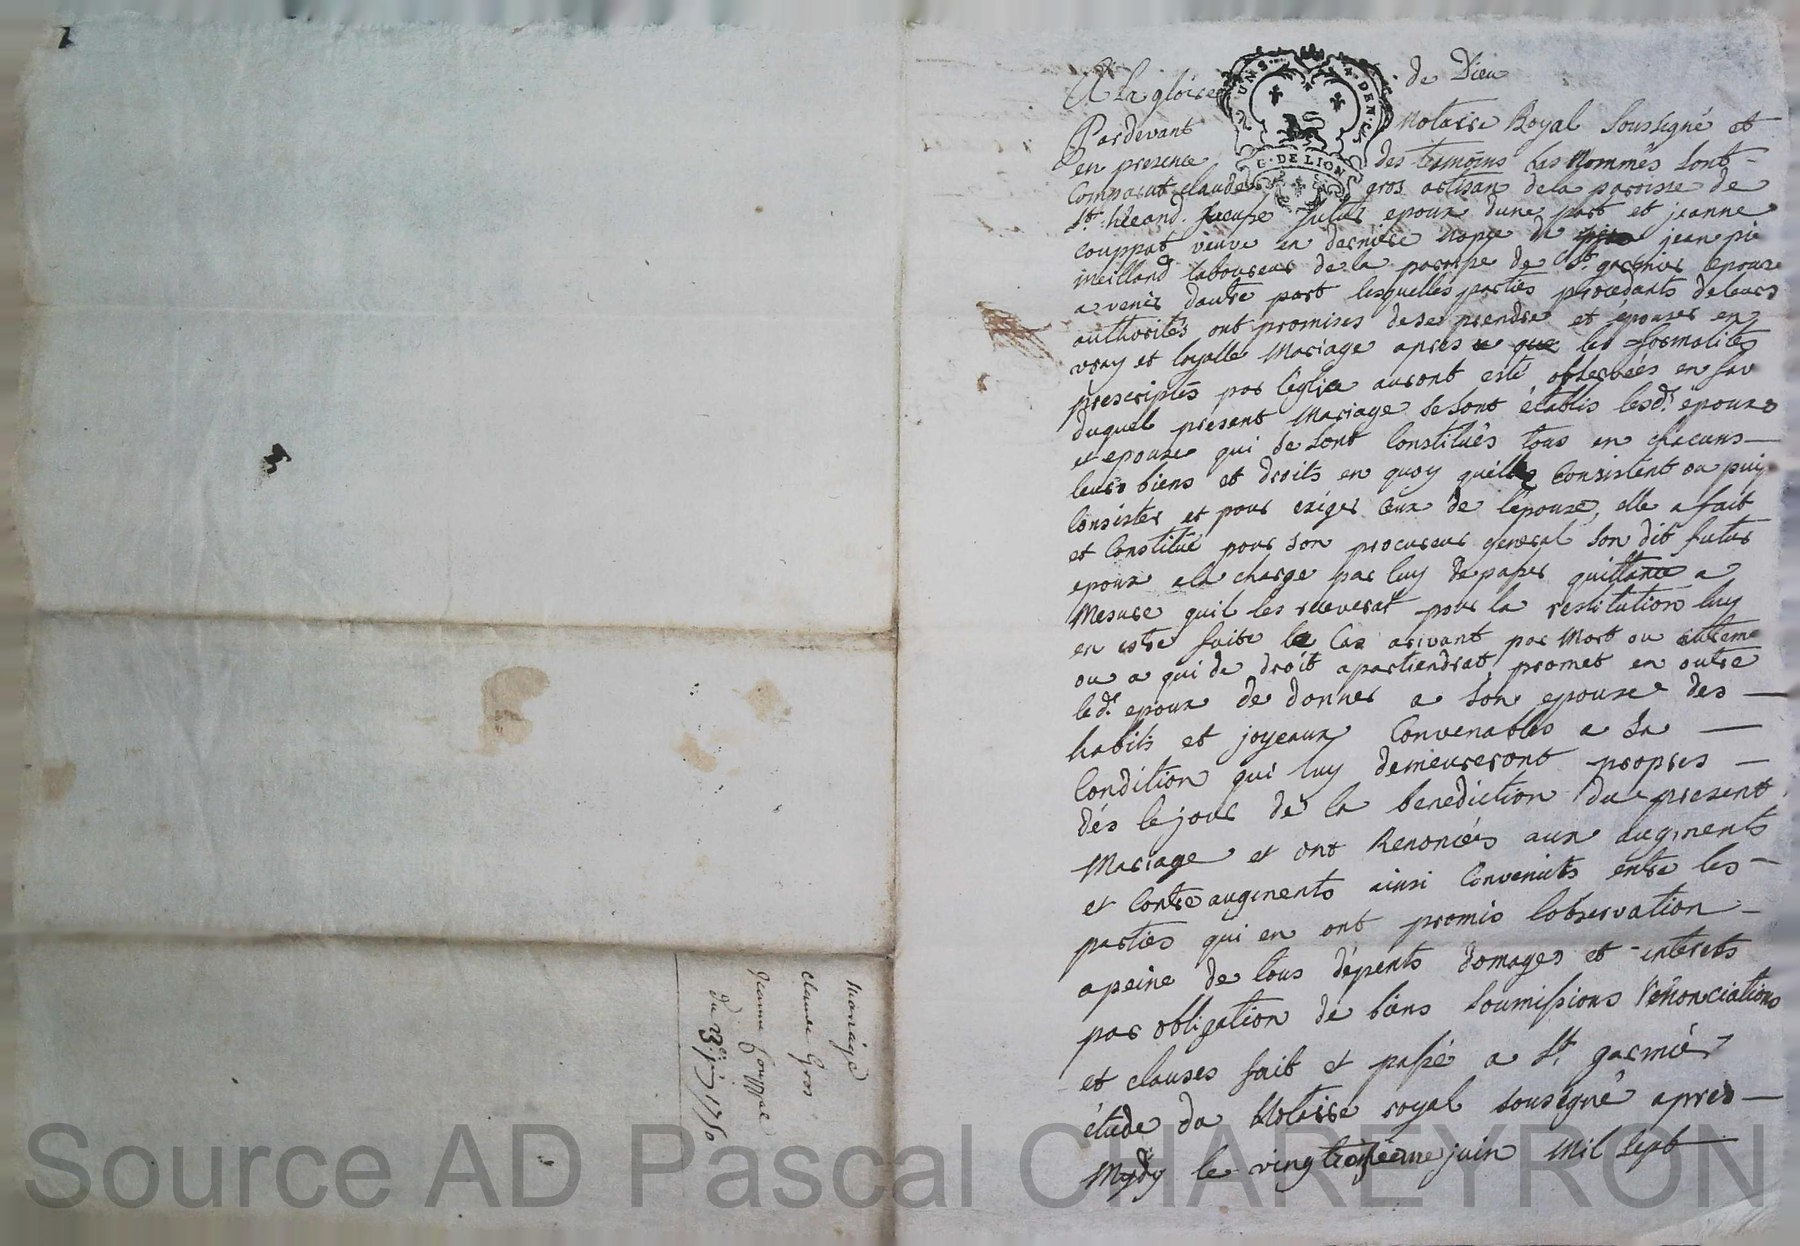 A la gloire de Dieu
Pardevant Notaire Royal Soussigné et
en presence des temoins bas Nommés sont
Comparut claude gros artisan dela paroisse de
St. heand futur epoux dune part et jeanne
Couppat veuve en derniere nopce de jean pi
meilland laboureur de la paroisse de St. garmier epouse
a venir dautre part lesquelles parties procedants deleurs
authorités ont promises dese prendre et épouser en
vray et loyalle Mariage apres que les formalites
prescriptes par l'eglise auront esté observées en fav
duquel present Mariage se sont établis lesd. epoux
et epouse qui se sont Constitués tous en chacuns
leurs biens et droits en quoy quelle Consistent ou puis
Consister et pour exiger Ceux de lepouse, elle a fait
et Constitué pour son procureur general son dit futur
epoux a la charge par luy de passer quittance a
Mesure quil les receverat pour la restitution luy
en estre faite le Cas arivant par Mort ou autreme
ou a qui de droit apartiendrat, promet en outre
led. epoux de donner a son epouse des
habits et joyeaux Convenables a sa
Condition qui luy demeureront propres
dés le jour de la benediction du present
Mariage et ont Renoncés aux augments
et Contre augments ainsi Convenuts entre les
parties qui en ont promis lobservation
apeine de tous dépents domages et interets
par obligation de biens soumissions renonciations
et clauses fait et passé a St. garmier
étude du Notaire royal sousegné apres
Mydy le vingtroisiéme juin Mil sept
mariage
claude Gros
Jeanne Couppat
du 23e. juin 1750
U. DE LION
Source AD Pascal CHAREYRON